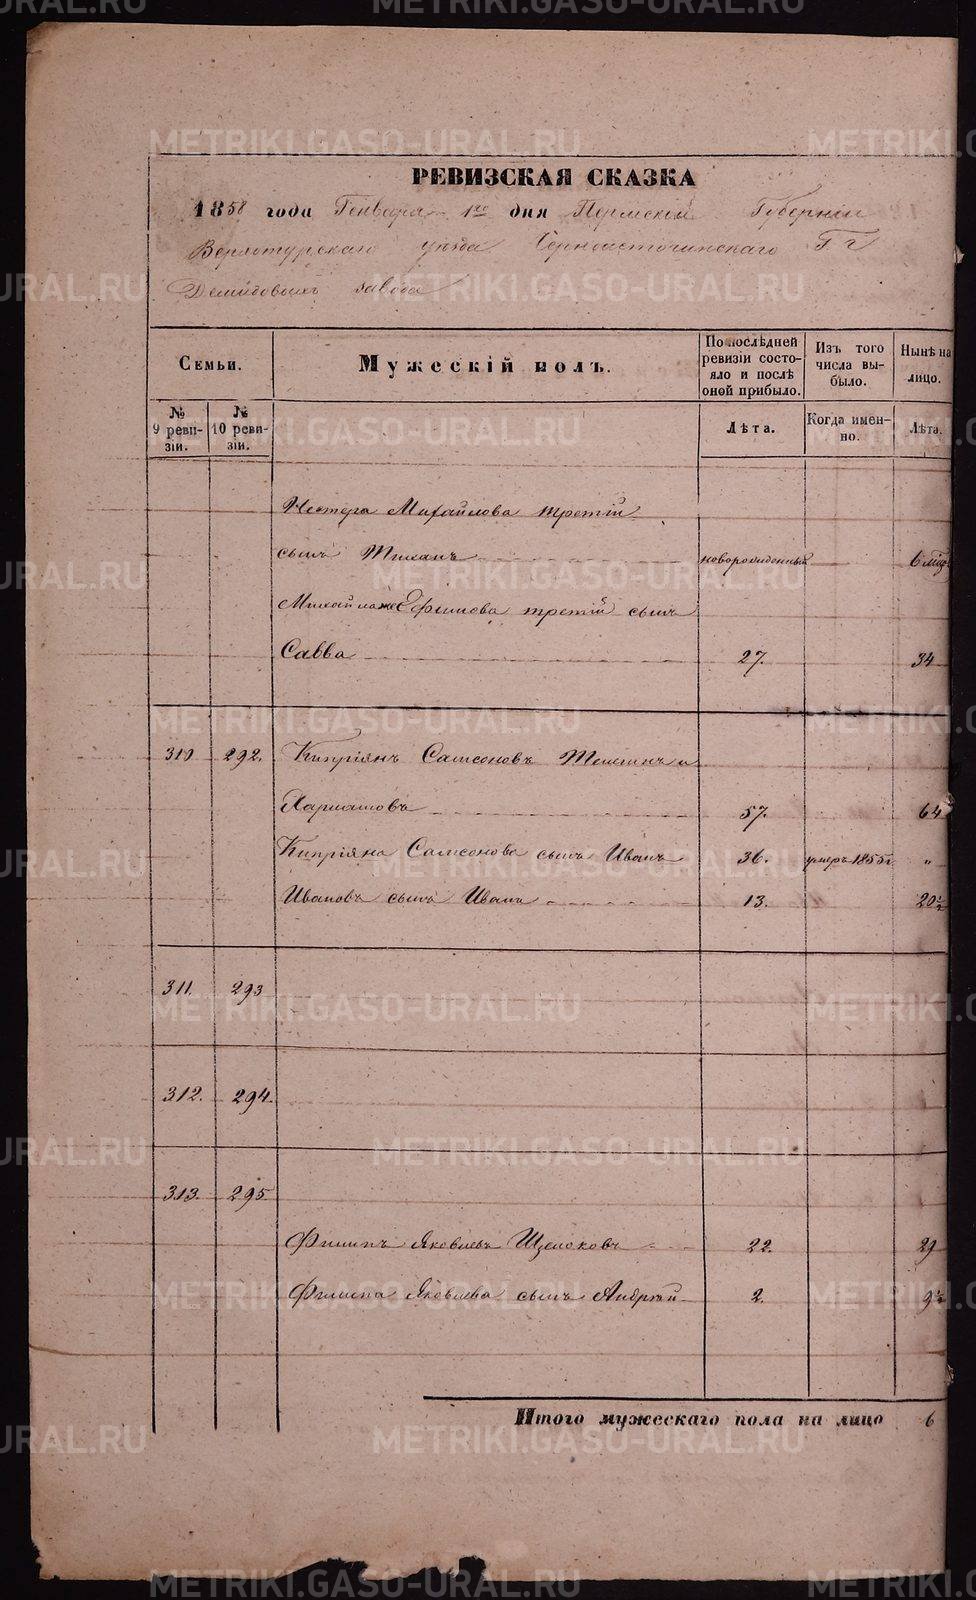 РЕВИЗСКАЯ СКАЗКА
1858 года Генваря 1го дня Пермской Губернiи
Верхотурскаго уѣзда Черноисточинскаго Гг
Демидовыхъ завода
Семьи.
Мужескiй полъ.
По послѣдней ревизiи состо-
яло и послѣ
оной прибыло.
Изъ того
числа вы-
было.
Нынѣ на
лицо.
№
9 реви-
зiи.
№
10 реви-
зiи.
Лѣта.
Когда имен-
но.
Лѣта.
Нестера Михайлова третiй
сынъ новорожденный 6 мѣс
Михайла Ефимова третiй сынъ
Савва 27. 34
310 292. Кипрiянъ Самсоновъ
57. 64
Кипрiяна Самсонова сынъ Иванъ 36. умеръ 1855г „
Ивановъ сынъ Иванъ 13. 20½
311. 293
312. 294.
313. 295
Филипъ Яковлевъ Щелоковъ 22. 29
Филипа Яковлева сынъ Андрей 2. 9½
Итого мужескаго пола на лицо 6
METRIKI.GASO-URAL.RU